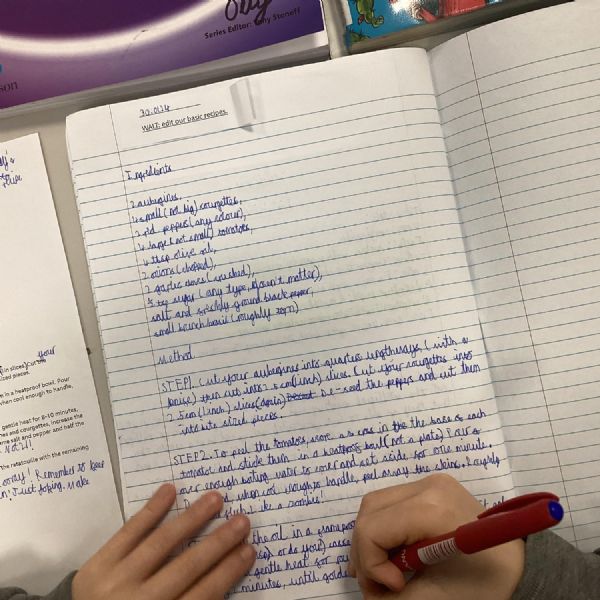 Series Editor: Tony Stoneff
son
30.01.24
WALT: edit our basic recipes.
Ingredients
2 aubergines,
4 small (not big) courgettes,
2 red peppers (any colour),
4 large (not small) tomatoes,
4 tbsp olive oil,
2 onions (chopped),
2 garlic cloves (crushed),
½ tsp sugar (any type, doesn't matter),
salt and freshly ground black pepper,
small bunch basil (roughly torn)
Method
STEP1. Cut your aubergines into quarters lengthways, (with a
knife) then cut into 2.5cm (1 inch) slices. Cut your courgettes into
2.5cm (1 inch) slices (again) De-seed the peppers and cut them
into bite sized pieces.
STEP2. To peel the tomatoes, score a cross in the the base of each
tomato and stick them in a heatproof bowl (not a plate) Pour
over enough boiling water to cover and set aside for one minute.
and, when cool enough to handle, peel away the skins. Roughly
flesh like a zombie!
the oil in a
or do you)
gentle heat for
minutes, until
(in slices) cut your
ized pieces.
e in a heatproof bowl. Pour
when cool enough to handle,
gentle heat for 8-10 minutes,
nes and courgettes, increase the
me salt and pepper and half the
the ratatouille with the remaining
Remember to keep
Just joking. Make